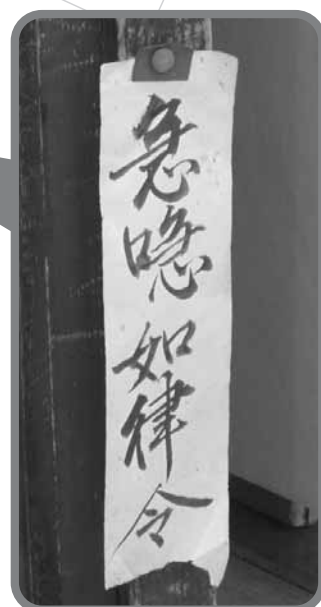 急喼如律令